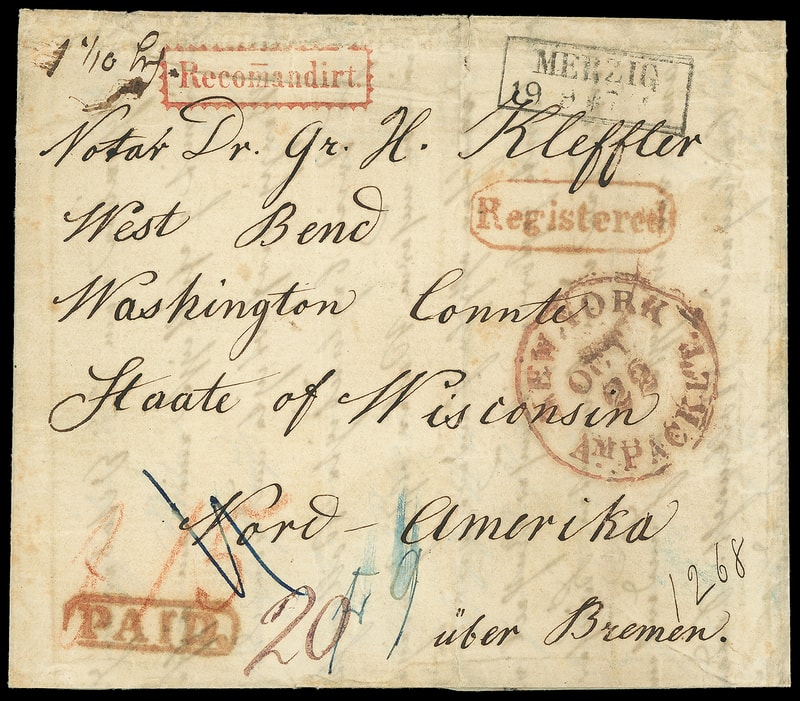 Recomandirt.
MERZIG
19
Notar Dr. Gr. H. Kleffler
West Bend
Registered
Washington Connte
NEW YORK
OCT
22
AM. PACKT.
Staate of Wisconsin
Nord-Amerika
1268
PAID
20
über Bremen.